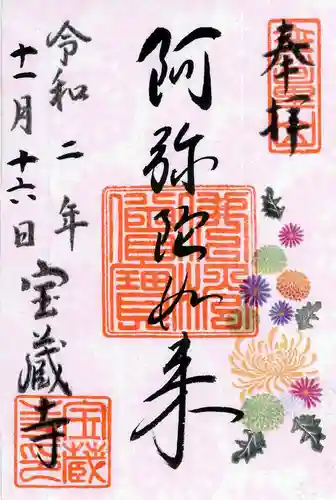 奉拝
阿弥陀如来
令和二年
十一月十六日
宝蔵寺